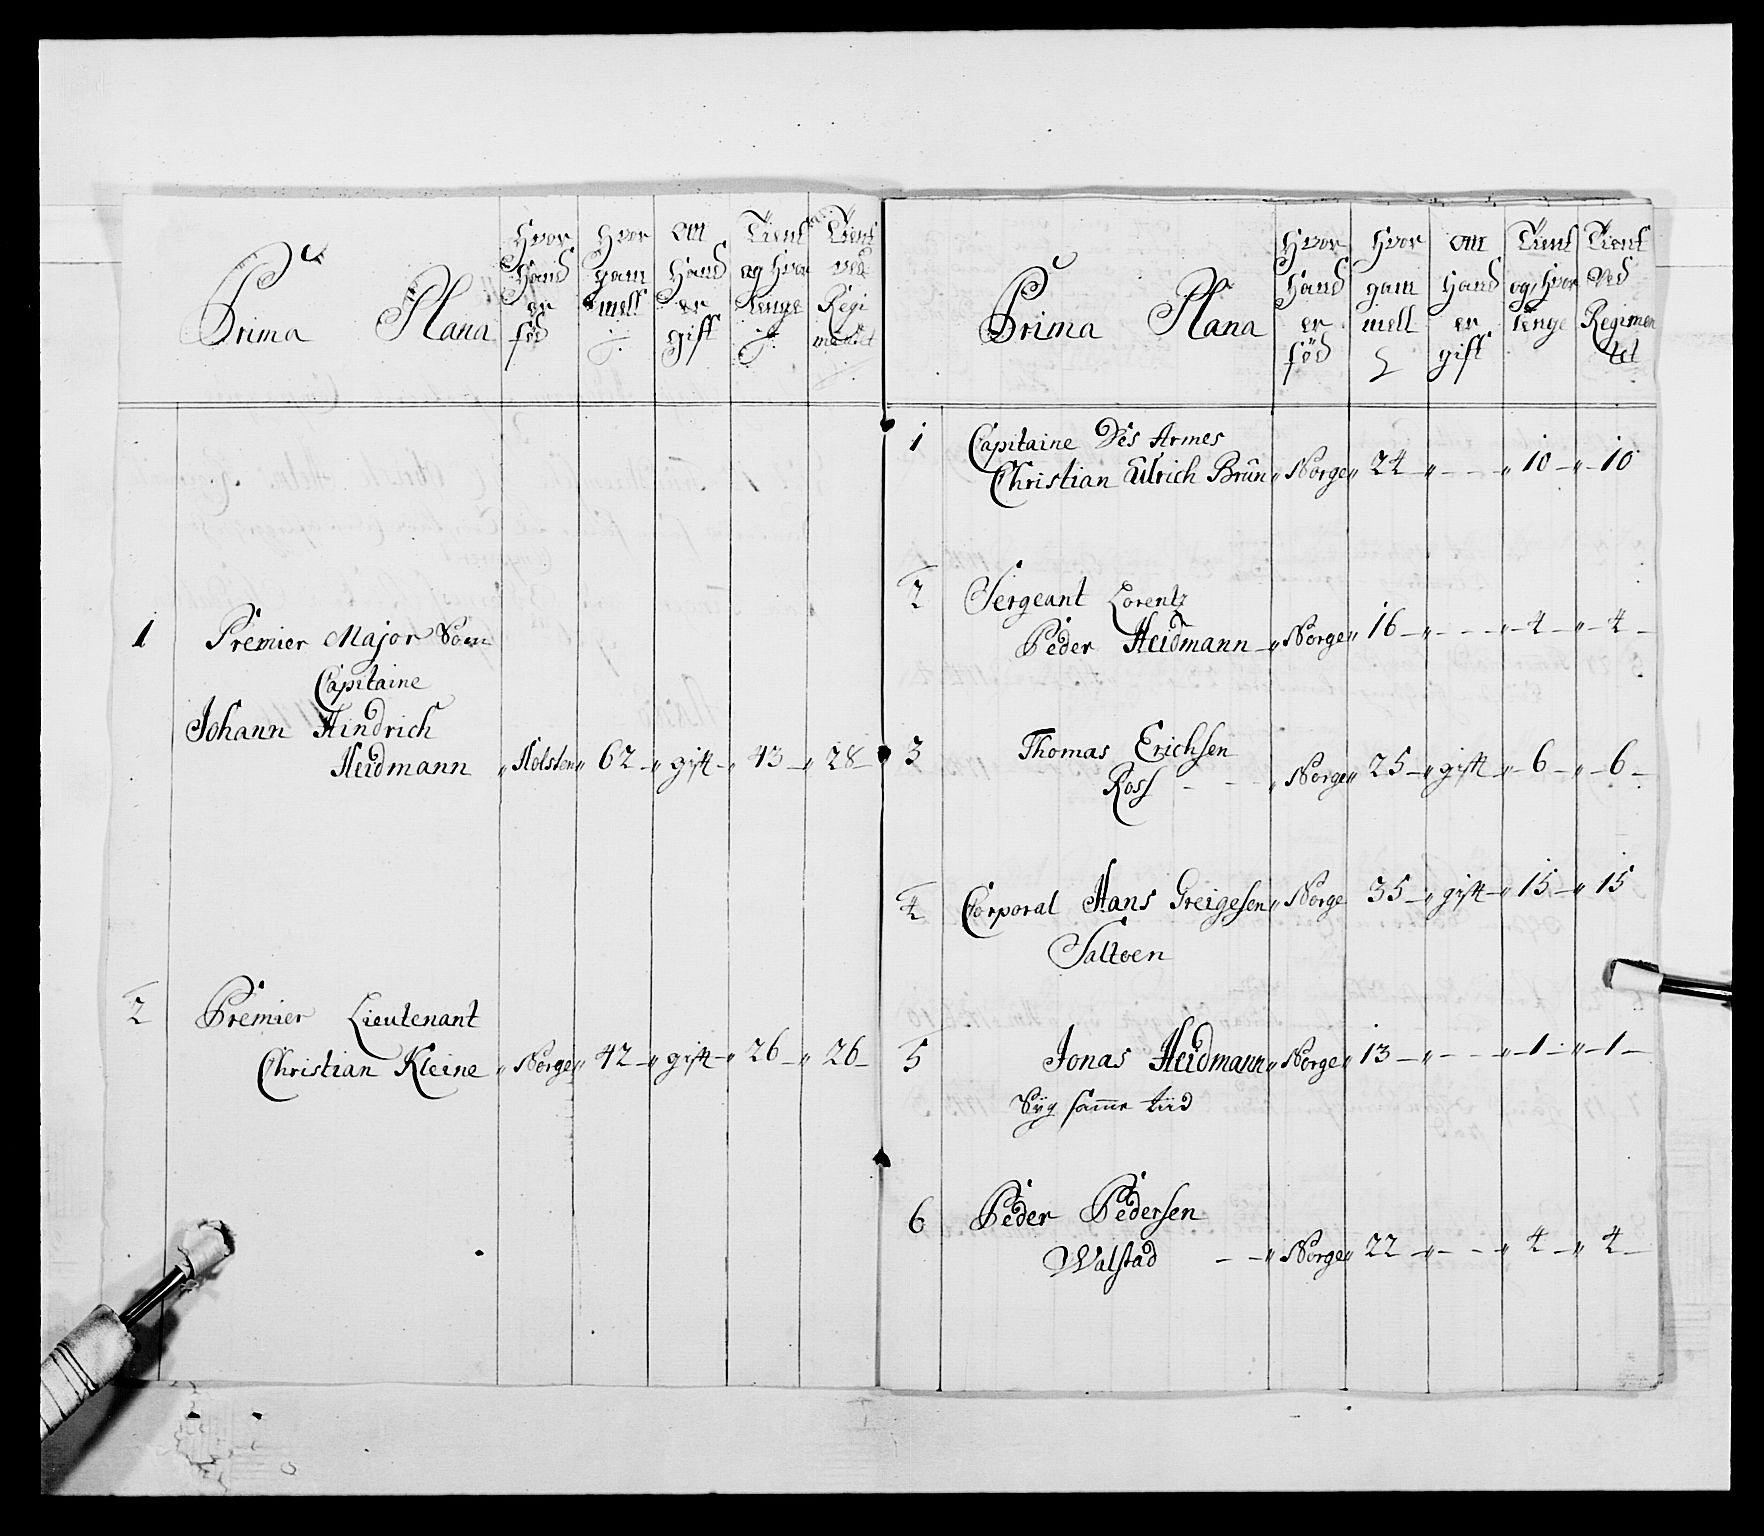 Prima Plana
Hvor Hand er föd
Hvor gam mell
Om Hand er gift
Tient og Hvor lenge
Tient ved Regi mentet
1 Premier Major Som
Capitaine
Johann Hindrich
Heidmann „ Holsten „ 62 – „ gift – „ 43 – „ 28 –
2 Premier Lieutenant
Christian Kleine „ Norge „ 42 – „ gift – „ 26 – „ 26 –
Prima Plana
Hvor Hand er föd
Hvor gam mell
Om Hand er gift
Tient og Hvor lenge
Tient Ved Regimen tet
1 Capitaine Des Armes
Christian Ulrich Brun „ Norge „ 24 – „ – – „ 10 – „ 10
2 Sergeant Lorentz
Peder Heidmann – „ Norge „ 16 – „ – – „ 4 – „ 4 –
3 Thomas Erichsen
Ross – – – „ Norge „ 25 – „ gift – „ 6 – „ 6 –
4 Corporal Hans Greigesen „ Norge 35 – „ gift – „ 15 – „ 15
Saltoen
5 Jonas Heidmann „ Norge „ 13 – „ – – „ 1 – „ 1 –
Syg samme tiid
6 Peder Pedersen
Walstad – – „ Norge „ 22 – „ – – „ 4 – „ 4 –